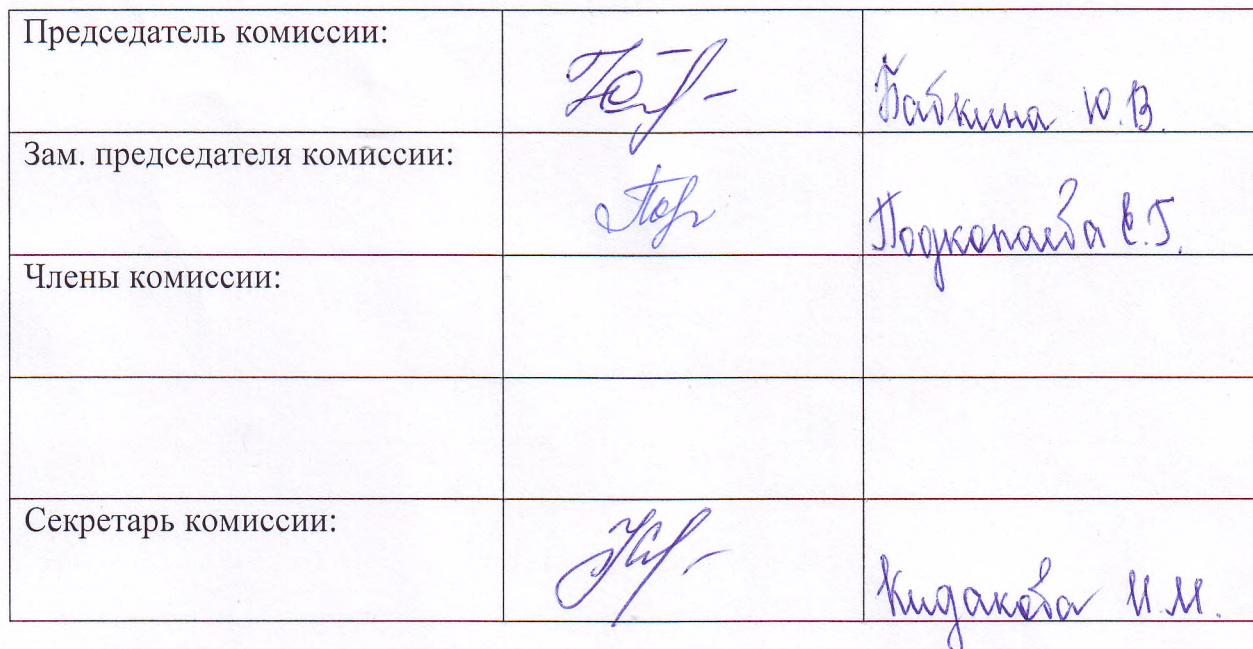 Председатель комиссии:
Бабкина Ю.В.
Зам. председателя комиссии:
Подкопаева Е.Г.
Члены комиссии:
Секретарь комиссии:
Кидакова И.М.